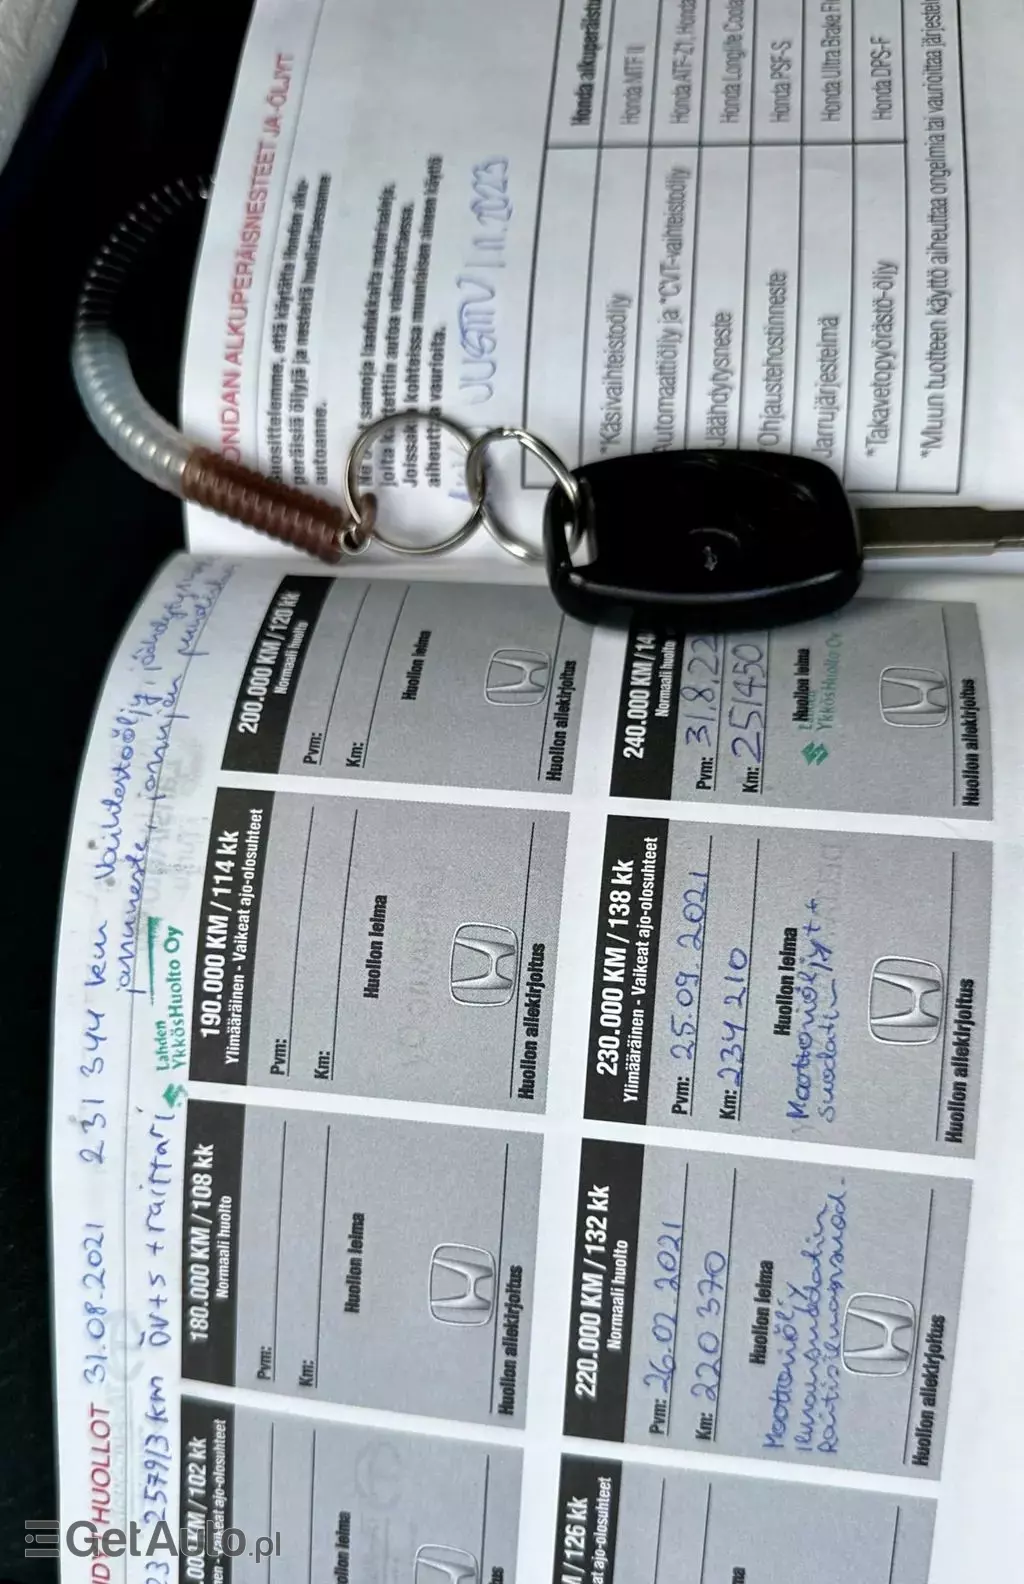 HUOLLOT 31.08.2021 231 344 km Vaihteistoöljy, jäähdytysneste
jarruneste, jarrujen puhdistus
25797/3 km ÖV+S + raittari
Lahden
YkkösHuolto Oy
200.000 KM / 120 kk
Normaali huolto
Pvm:
Km:
Huollon leima
Huollon allekirjoitus
190.000 KM / 114 kk
Ylimääräinen - Vaikeat ajo-olosuhteet
Pvm:
Km:
Huollon leima
Huollon allekirjoitus
180.000 KM / 108 kk
Normaali huolto
Pvm:
Km:
Huollon leima
Huollon allekirjoitus
/ 102 kk
ajo-olosuhteet
Huollon leima
Huollon allekirjoitus
240.000 KM / 14
Normaali huolto
Pvm: 31.8.22
Km: 251450
Huollon leima
YkkösHuolto Oy
Huollon allekirjoitus
230.000 KM / 138 kk
Ylimääräinen - Vaikeat ajo-olosuhteet
Pvm: 25.09.2021
Km: 234 210
Huollon leima
Moottoriöljyt +
suodatin
Huollon allekirjoitus
220.000 KM / 132 kk
Normaali huolto
Pvm: 26.02.2021
Km: 220 370
Huollon leima
Moottoriöljy
ilmansuodatin
Raitisilmansuod.
Huollon allekirjoitus
/ 126 kk
ajo-olosuhteet
HONDAN ALKUPERÄISNESTEET JA -ÖLJYT
Suosittelemme, että käytätte Hondan alku-
peräisiä öljyjä ja nesteitä huollattaessanne
autoanne.
samoja laadukkaita materiaaleja,
joita
autoa valmistettaessa.
Joissak kohteissa muunlaisen aineen käyttö
aiheutta vaurioita.
JUSTTU 1.11.2023
Honda alkuperäistu
*Käsivaihteistoöljy Honda MTF II
Automaattiöljy ja *CVT-vaihteistoöljy Honda ATF-Z1, Honda
Jäähdytysneste Honda Longlife Coola
Ohjaustehostinneste Honda PSF-S
Jarrujärjestelmä Honda Ultra Brake Fl
*Takavetopyörästö-öljy Honda DPS-F
*Muun tuotteen käyttö aiheuttaa ongelmia tai vaurioittaa järjestel
GetAuto.pl